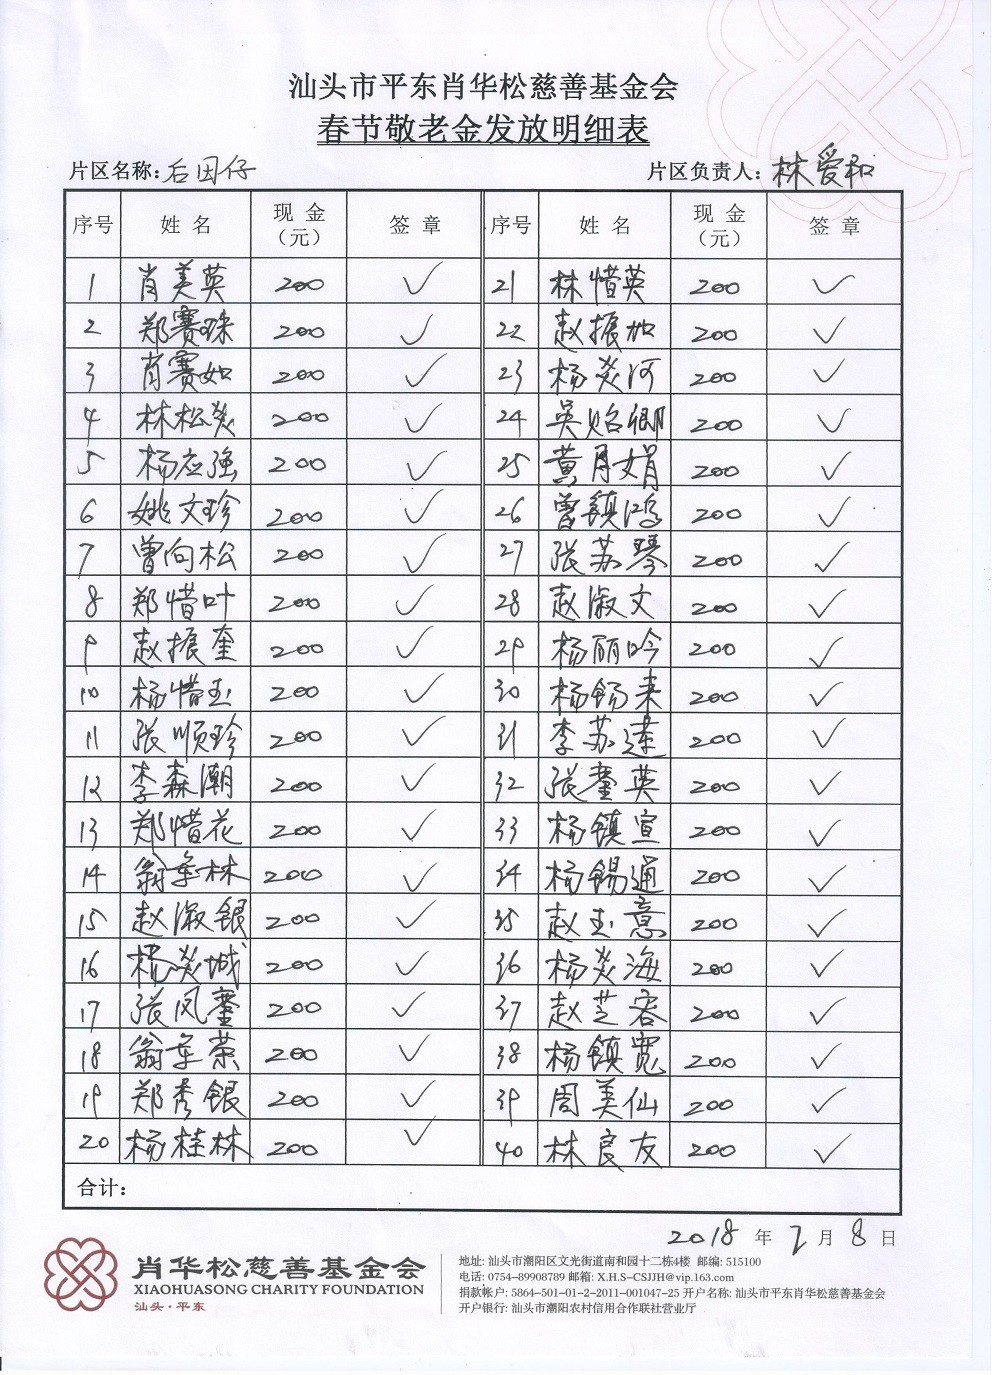 汕头市平东肖华松慈善基金会
春节敬老金发放明细表
片区名称：后田仔 片区负责人：林爱和
序号 姓名 现金（元） 签章 序号 姓名 现金（元） 签章
1 肖美英 200 ✓ 21 林惜英 200 ✓
2 郑赛珠 200 ✓ 22 赵振加 200 ✓
3 肖赛如 200 ✓ 23 杨炎河 200 ✓
4 林松炎 200 ✓ 24 吴焰卿 200 ✓
5 杨应强 200 ✓ 25 黄月娟 200 ✓
6 姚文珍 200 ✓ 26 曾镇鸿 200 ✓
7 曾向松 200 ✓ 27 张苏琴 200 ✓
8 郑惜叶 200 ✓ 28 赵淑文 200 ✓
9 赵振奎 200 ✓ 29 杨丽吟 200 ✓
10 杨惜玉 200 ✓ 30 杨锡来 200 ✓
11 张顺珍 200 ✓ 31 李苏莲 200 ✓
12 李森潮 200 ✓ 32 张英 200 ✓
13 郑惜花 200 ✓ 33 杨镇宣 200 ✓
14 翁林 200 ✓ 34 杨锡通 200 ✓
15 赵淑银 200 ✓ 35 赵玉意 200 ✓
16 杨炎城 200 ✓ 36 杨炎海 200 ✓
17 张凤 200 ✓ 37 赵芝容 200 ✓
18 翁荣 200 ✓ 38 杨镇宽 200 ✓
19 郑秀银 200 ✓ 39 周美仙 200 ✓
20 杨桂林 200 ✓ 40 林良友 200 ✓
合计：
2018 年 2 月 8 日
肖华松慈善基金会
XIAOHUASONG CHARITY FOUNDATION
汕头·平东
地址: 汕头市潮阳区文光街道南和园十二栋4楼 邮编: 515100
电话: 0754-89908789 邮箱: X.H.S-CSJJH@vip.163.com
捐款帐户: 5864-501-01-2-2011-001047-25 开户名称: 汕头市平东肖华松慈善基金会
开户银行: 汕头市潮阳农村信用合作联社营业厅